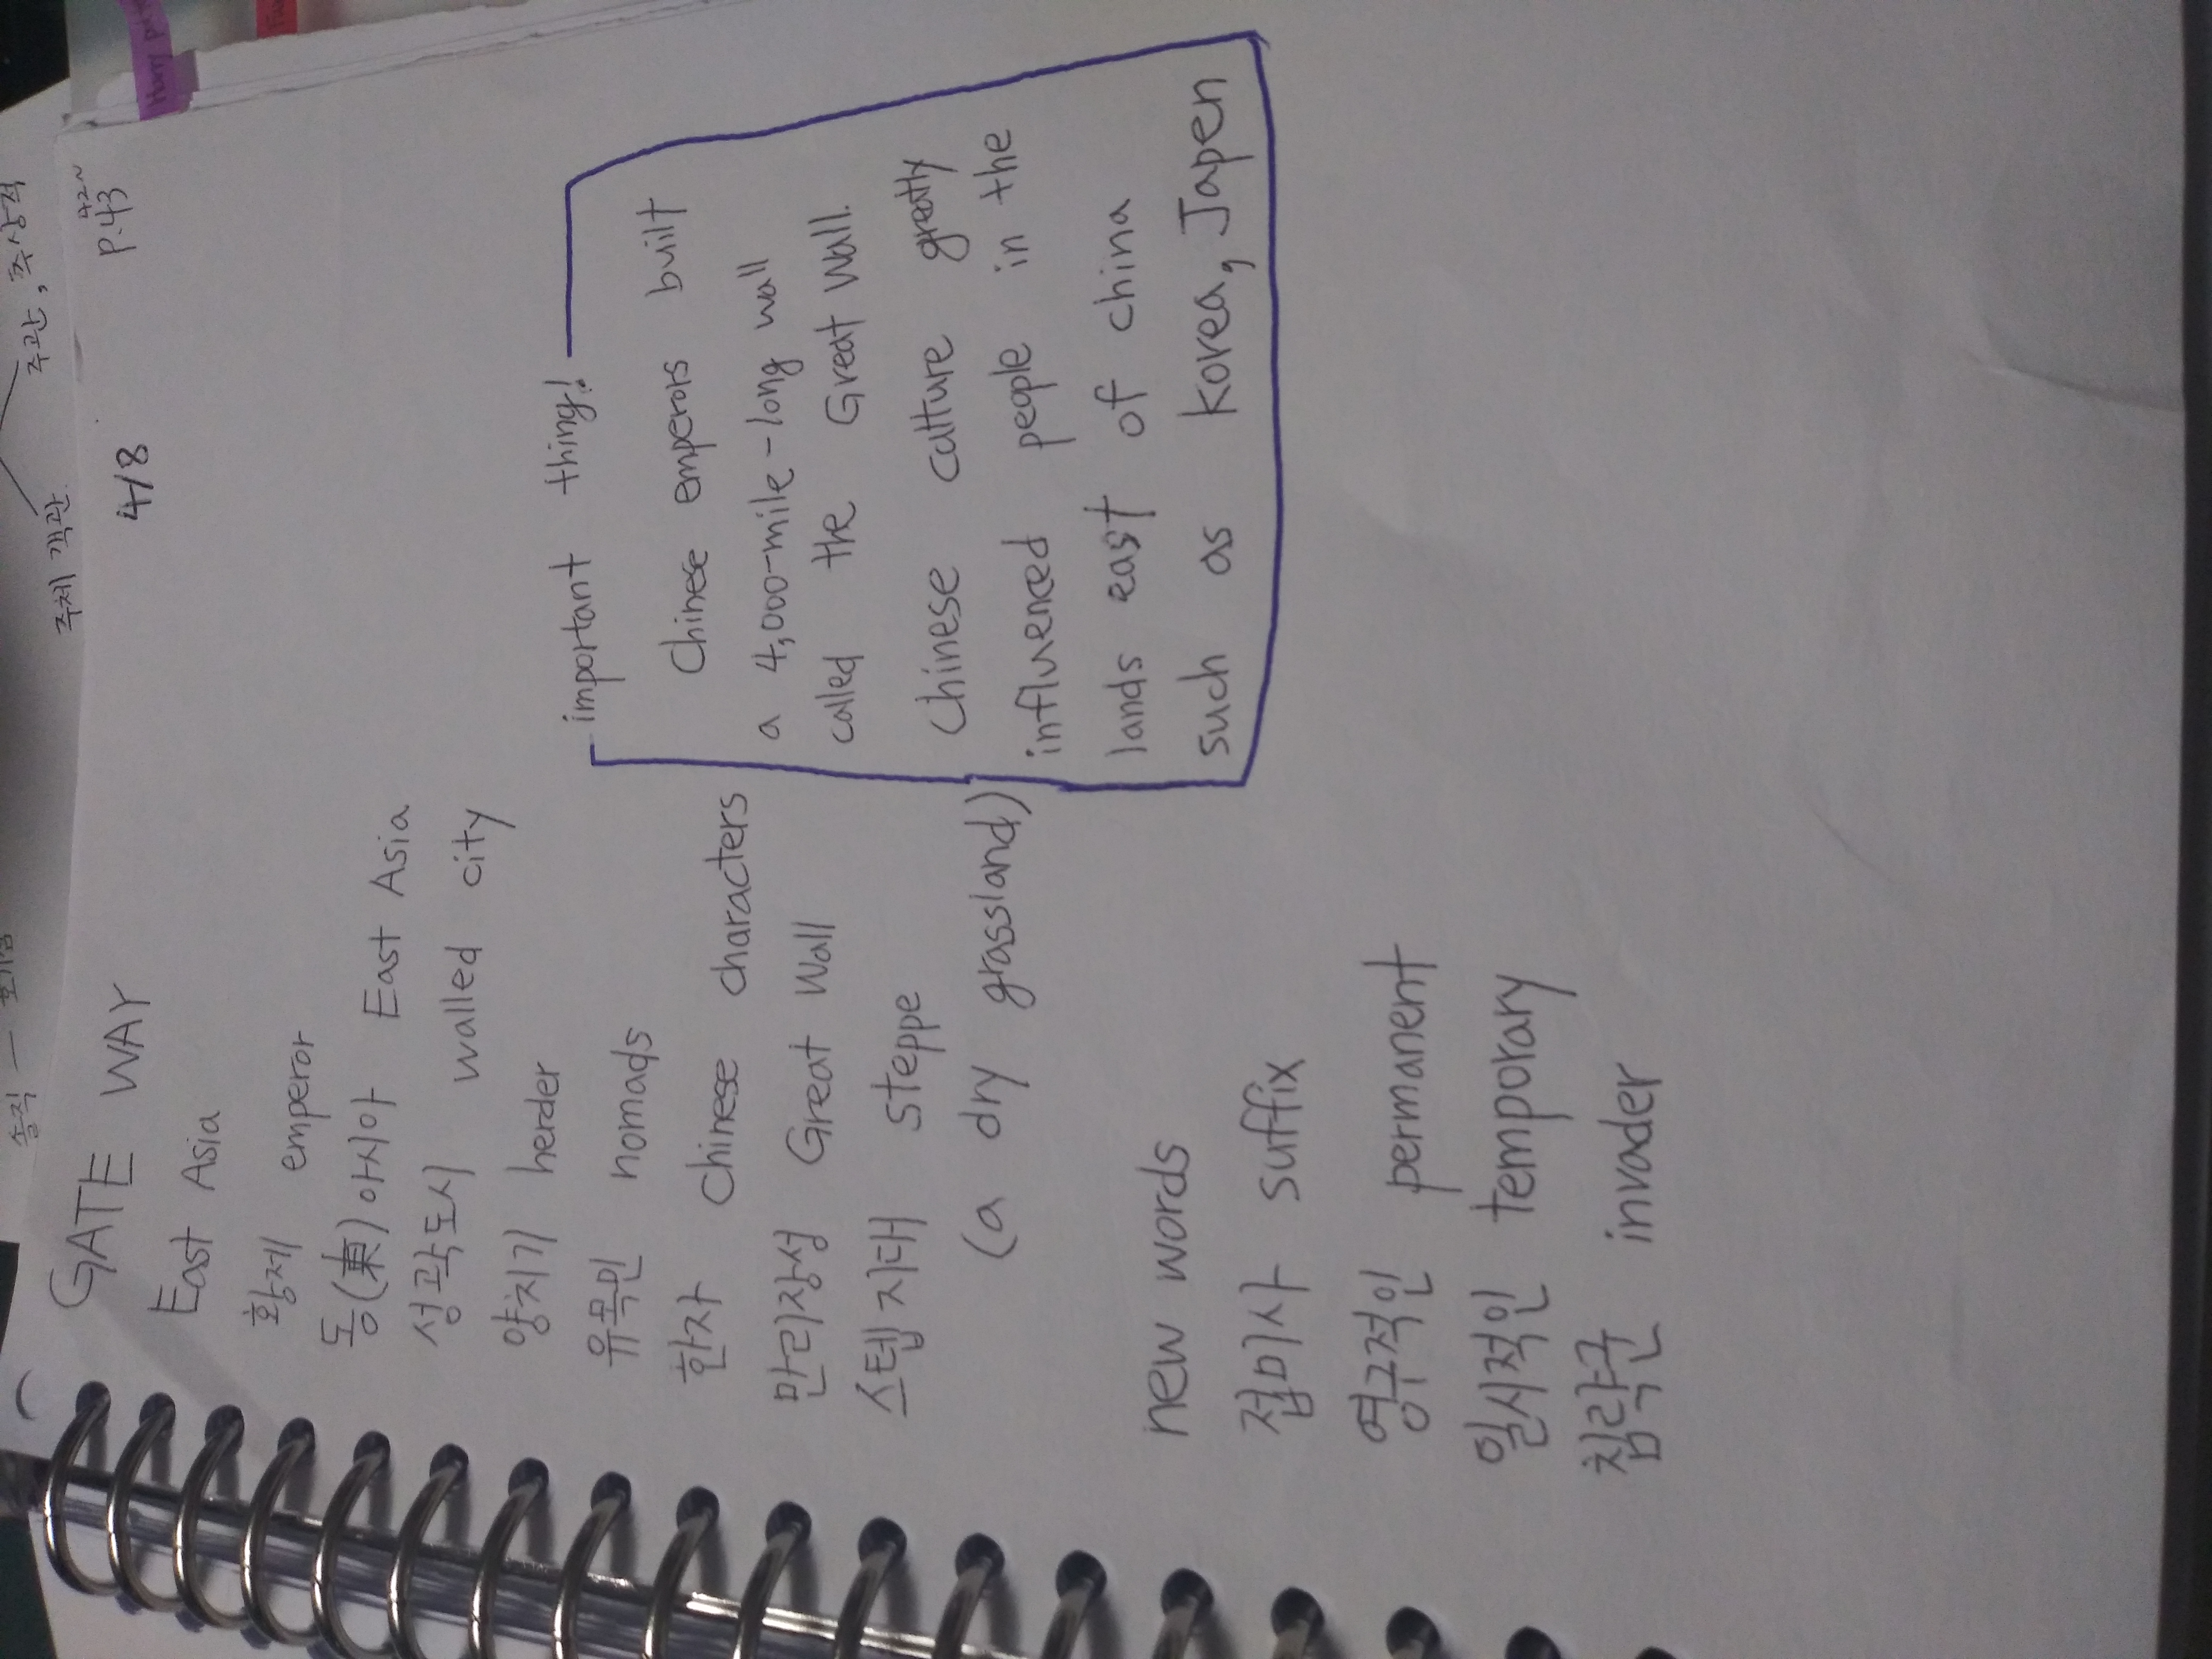 주체 객관 주관, 추상적
GATE WAY 4/8 42~
P.43
East Asia
황제 emperor
동(東)아시아 East Asia
성곽도시 walled city
양치기 herder
유목민 nomads
한자 Chinese characters
만리장성 Great Wall
스텝지대 steppe
(a dry grassland)
important thing!
Chinese emperors built
a 4,000-mile-long wall
called the Great Wall.
Chinese culture greatly
influenced people in the
lands east of china
such as Korea, Japen
new words
접미사 suffix
영구적인 permanent
일시적인 temporary
침략군 invader
Harry